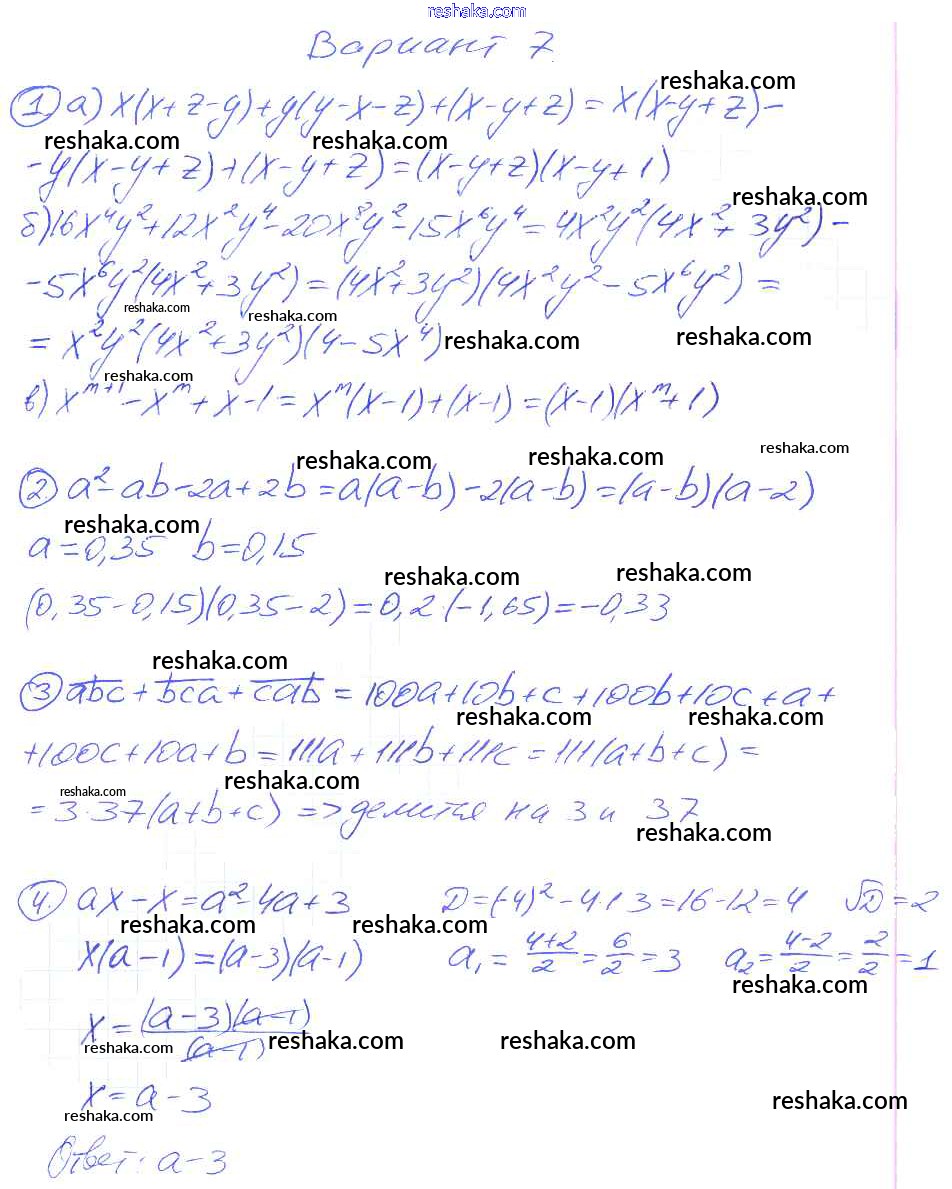 reshaka.com
Вариант 7
reshaka.com
1. а) x(x+z-y)+y(y-x-z)+(x-y+z)=x(x-y+z)-
reshaka.com reshaka.com
-y(x-y+z)+(x-y+z)=(x-y+z)(x-y+1)
reshaka.com
б) 16x⁴y²+12x²y⁴-20x⁸y²-15x⁶y⁴=4x²y²(4x²+3y²)-
-5x⁶y²(4x²+3y²)=(4x²+3y²)(4x²y²-5x⁶y²)=
reshaka.com reshaka.com
=x²y²(4x²+3y²)(4-5x⁴) reshaka.com reshaka.com
reshaka.com
в) xᵐ⁺¹-xᵐ+x-1=xᵐ(x-1)+(x-1)=(x-1)(xᵐ+1)
reshaka.com reshaka.com reshaka.com
2 a²-ab-2a+2b=a(a-b)-2(a-b)=(a-b)(a-2)
reshaka.com
a=0,35 b=0,15
reshaka.com reshaka.com
(0,35-0,15)(0,35-2)=0,2·(-1,65)=-0,33
reshaka.com
3 a̅b̅c̅+b̅c̅a̅+c̅a̅b̅=100a+10b+c+100b+10c+a+
reshaka.com reshaka.com
+100c+10a+b=111a+111b+111c=111(a+b+c)=
reshaka.com reshaka.com
=3·37(a+b+c) => делится на 3 и 37
reshaka.com
4. ax-x=a²-4a+3 D=(-4)²-4·1·3=16-12=4 √D=2
reshaka.com reshaka.com
x(a-1)=(a-3)(a-1) a₁=(4+2)/2=6/2=3 a₂=(4-2)/2=2/2=1
reshaka.com
x=(a-3)(a-1)/(a-1)
reshaka.com reshaka.com reshaka.com
x=a-3
reshaka.com reshaka.com
Ответ: a-3